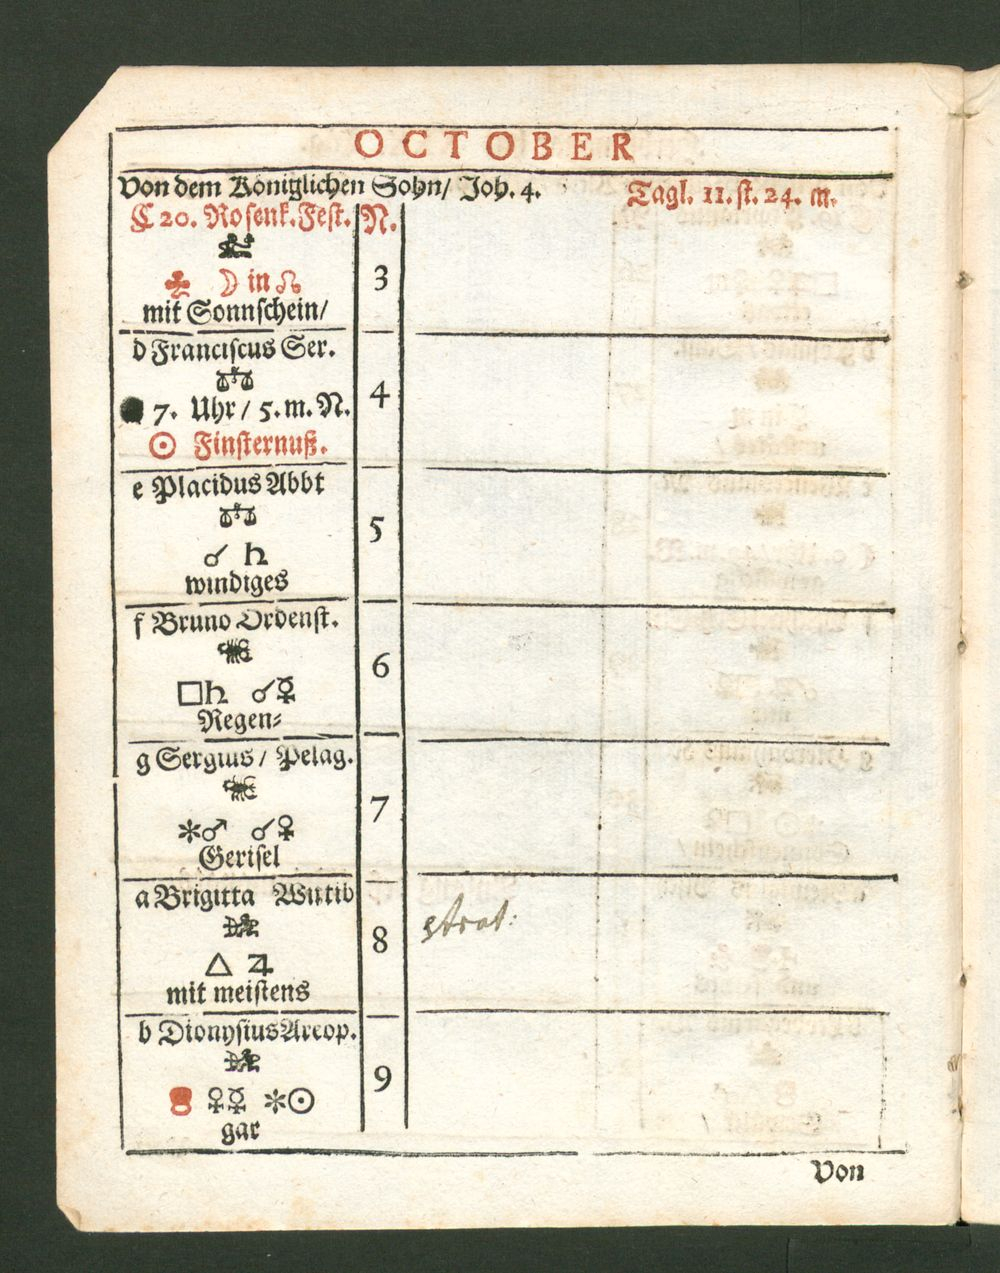 OCTOBER
Von dem Königlichen Sohn/ Joh. 4. Tagl. 11. st. 24. m.
C 20. Rosenk. Fest. N.
☽ in ☊ 3
mit Sonnschein/
d Franciscus Ser.
♎
● 7. Uhr/ 5. m. N. 4
☉ Finsternuß.
e Placidus Abbt
♎
☌ ♄ 5
windiges
f Bruno Ordenst.
♏
□♄ ☌☿ 6
Regen⸗
g Sergius/ Pelag.
♏
✱♂ ☌♀ 7
Gerisel
a Brigitta Wittib
♐
△ ♃ 8
mit meistens
b Dionysius Areop.
♐
♀☿ ✱☉ 9
gar
Von